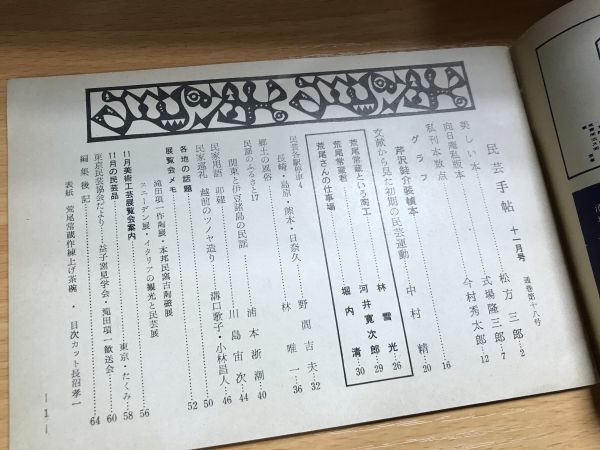 民芸手帖 十一月号 通巻第十八号
美しい本 松方三郎 2
向日庵私版本 式場隆三郎 7
私刊本数点 今村秀太郎 12
グラフ 芹沢銈介装幀本 16
文献から見た初期の民芸運動 中村精 20
荒尾常蔵という陶工 林雪光 26
荒尾常蔵君 河井寛次郎 29
荒尾さんの仕事場 堀内清 30
民芸各駅停車4
長崎・島原・熊本・日奈久 野間吉夫 32
郷土の風俗 林唯一 36
民謡のふるさと17
関東と伊豆諸島の民謡 浦本浙潮 40
民家用語 卯建 川島宙次 44
民家巡礼 越前のツノヤ造り 溝口歌子・小林昌人 46
各地の話題 50
展覧会メモ 52
滝田項一作陶展・本邦民窯古陶磁展
スエーデン展・イタリアの観光と民芸展
11月美術工芸展覧会案内 56
11月の民芸品 東京・たくみ 58
東京民芸協会だより 益子窯見学会・滝田項一歓送会 60
編集後記 64
表紙 荒尾常蔵作練上げ茶碗 ・ 目次カット長沼孝一
— 1 —